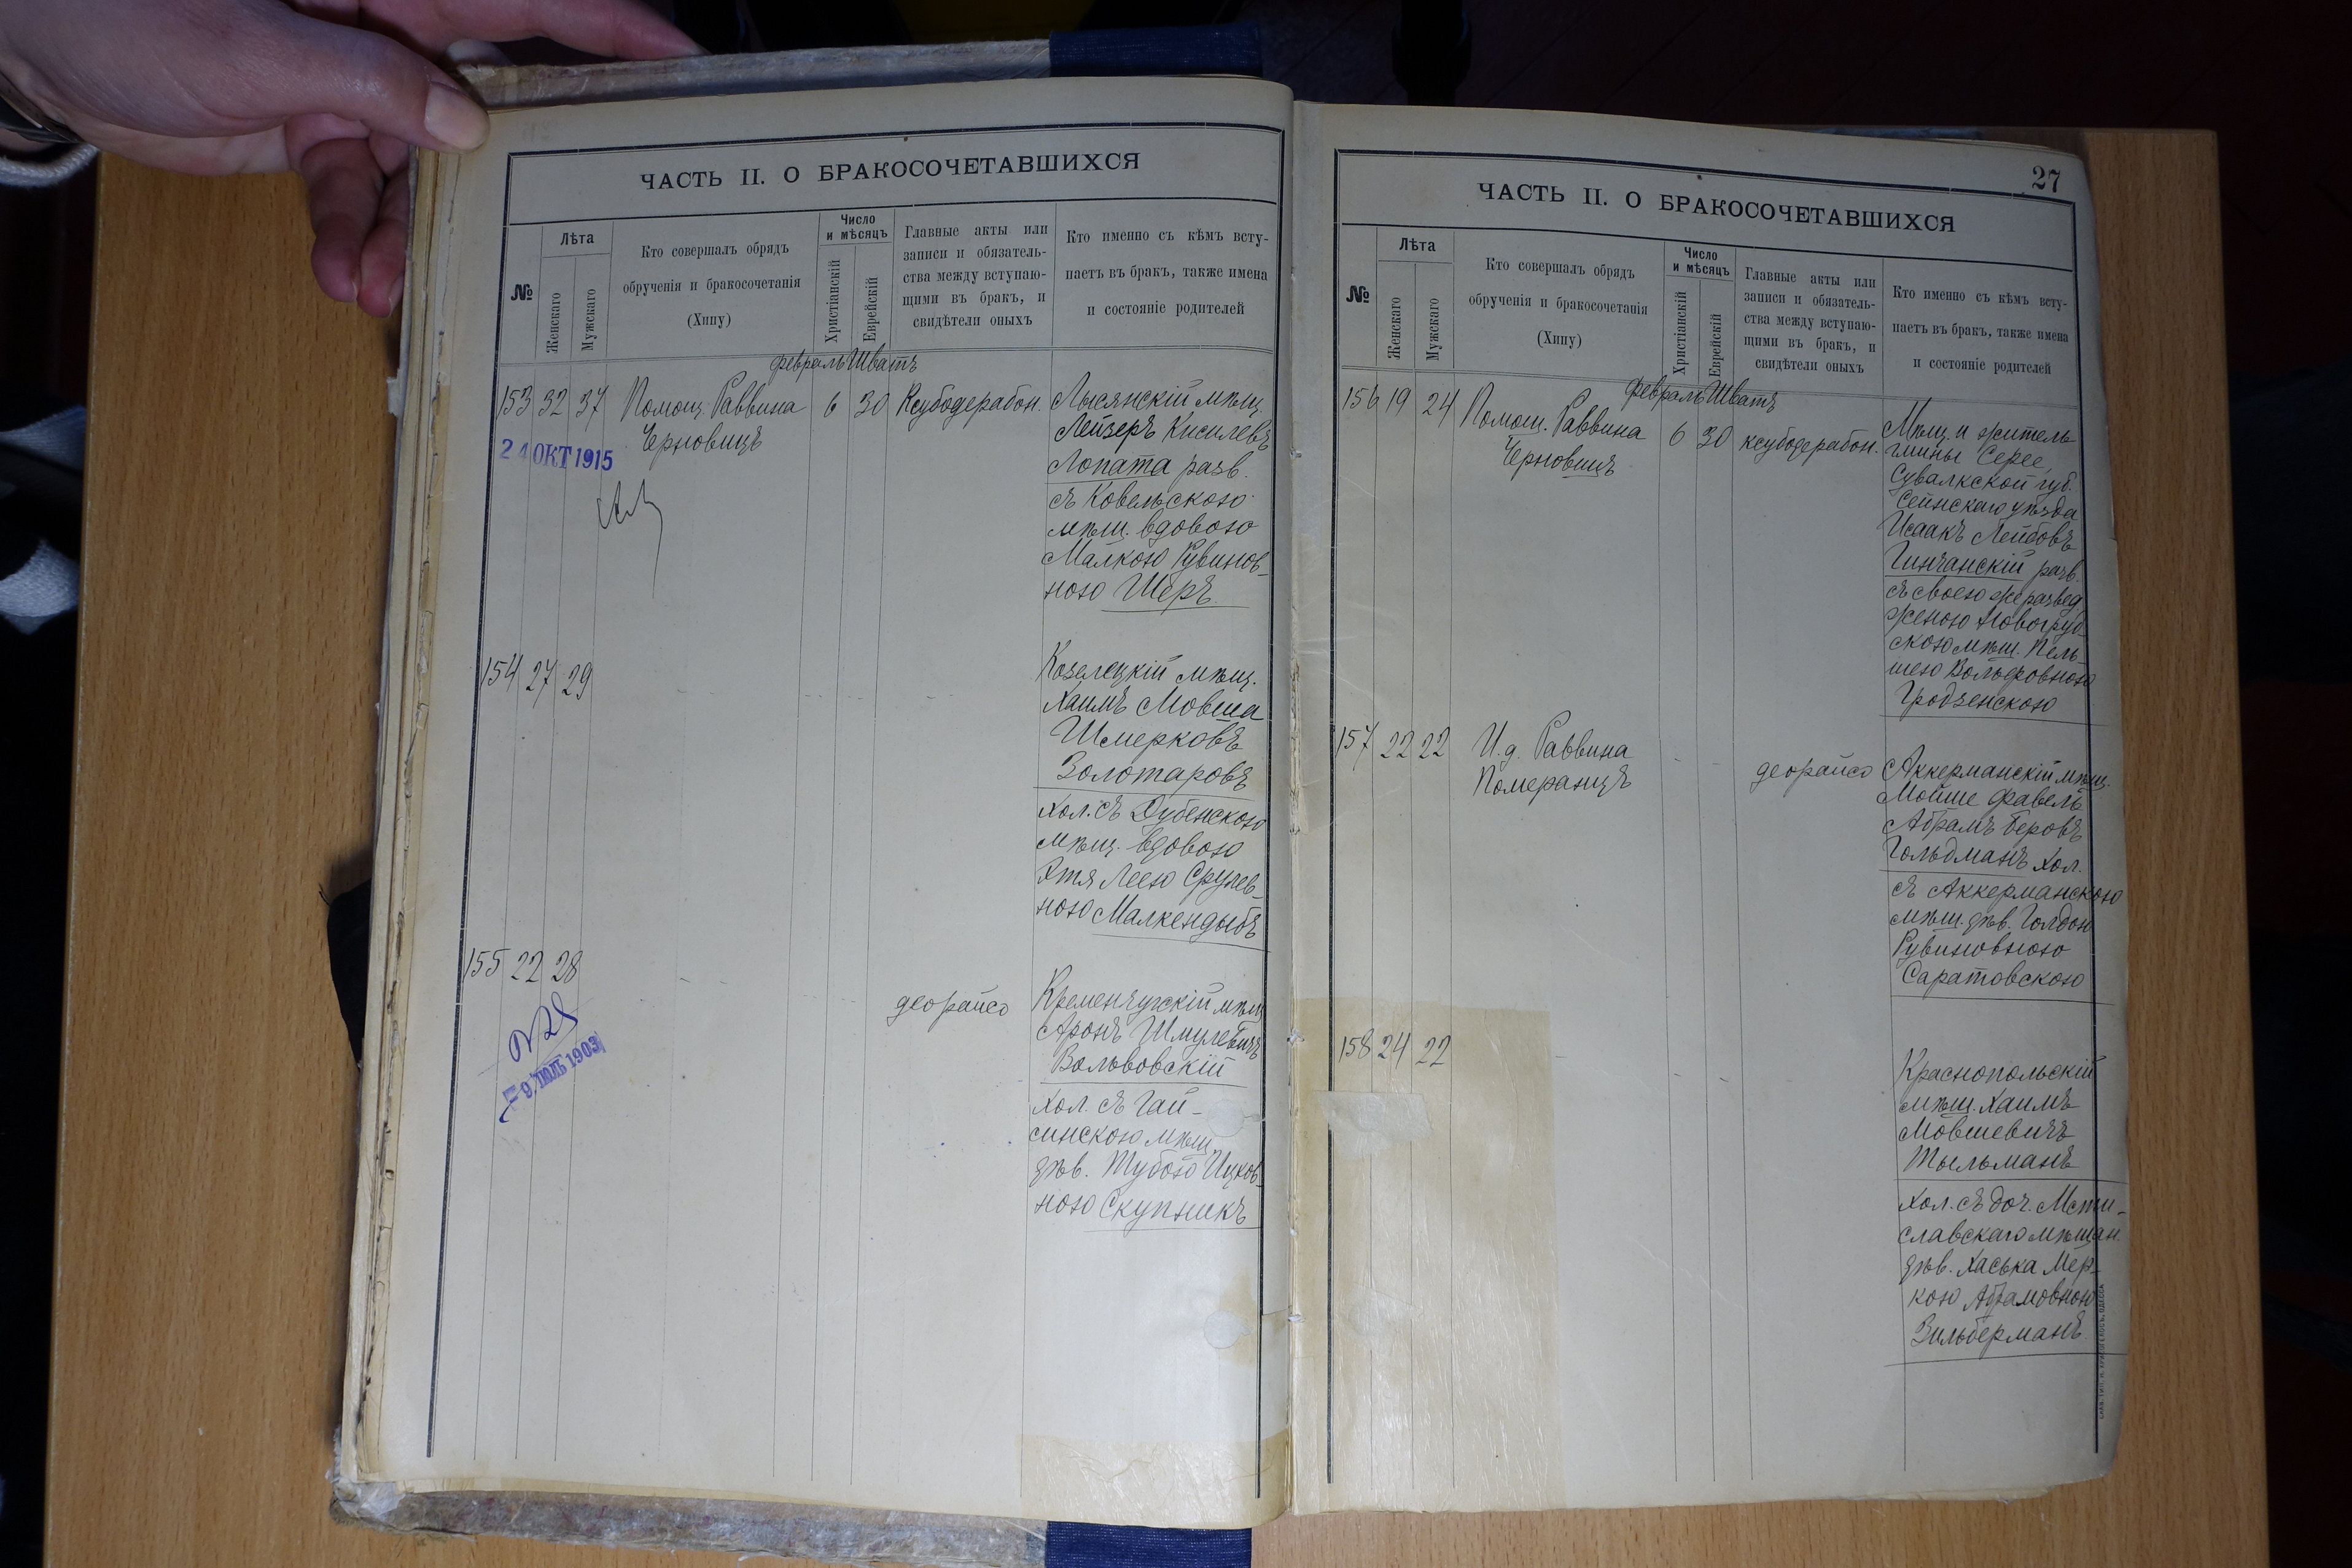 ЧАСТЬ II. О БРАКОСОЧЕТАВШИХСЯ
№
Лѣта
Женскаго
Мужскаго
Кто совершалъ обрядъ
обрученія и бракосочетанія
(Хипу)
Число
и мѣсяцъ
Христіанскій
Еврейскій
Главные акты или
записи и обязатель-
ства между вступаю-
щими въ бракъ, и
свидѣтели оныхъ
Кто именно съ кѣмъ всту-
паетъ въ бракъ, также имена
и состояніе родителей
февраль Шватъ
153 32 37
Помощ. Раввина
Черновицъ
6 30
Ксубодерабон.
Лысянскій мѣщ.
Лейзеръ Кисилевъ
Лопата разв.
съ Ковельскою
мѣщ. вдовою
Малкою Рувинов-
ною Шеръ
24 ОКТ 1915
154 27 29
Козелецкій мѣщ.
Хаимъ Мовша
Шмерковъ
Золотаровъ
хол. съ Дубенскою
мѣщ. вдовою
Хтя Леею Срулев-
ною Малкендыбъ
155 22 28
деорайсо
Кременчугскій мѣщ
Аронъ Шмулевичъ
Вольвовскій
хол. съ Гай-
синскою мѣщ
дѣв. Тубою Ицков-
ною Скупникъ
9 ІЮЛЬ 1903
27
ЧАСТЬ II. О БРАКОСОЧЕТАВШИХСЯ
№
Лѣта
Женскаго
Мужскаго
Кто совершалъ обрядъ
обрученія и бракосочетанія
(Хипу)
Число
и мѣсяцъ
Христіанскій
Еврейскій
Главные акты или
записи и обязатель-
ства между вступаю-
щими въ бракъ, и
свидѣтели оныхъ
Кто именно съ кѣмъ всту-
паетъ въ бракъ, также имена
и состояніе родителей
февраль Шватъ
156 19 24
Помощ. Раввина
Черновицъ
6 30
ксубодерабон.
Мѣщ. и житель
гмины Серее,
Сувалкской губ.
Сейнскаго уѣзда
Исаакъ Лейбовъ
Гинчанскій разв.
съ своею же развед.
женою Новогруд-
скою мѣщ. Пель-
шею Вольфовною
Гродзенскою
157 22 22
И.д. Раввина
Померанцъ
деорайсо
Аккерманскій мѣщ.
Мойше Фавель
Абрамъ Беровъ
Гольдманъ хол.
съ Аккерманскою
мѣщ. дѣв. Голдою
Рувиновною
Саратовскою
158 24 22
Краснопольскій
мѣщ. Хаимъ
Мовшевичъ
Тыльманъ
хол. съ доч. Мсти-
славскаго мѣщан.
дѣв. Хаська Мер-
кою Абрамовною
Зильберманъ